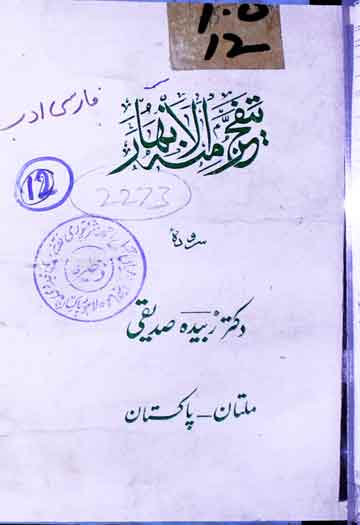 1.0
12
فارسی ادب
یتفجر منہ الانھار
12
2273
سرودہ
دکتر زبیدہ صدیقی
ملتان - پاکستان